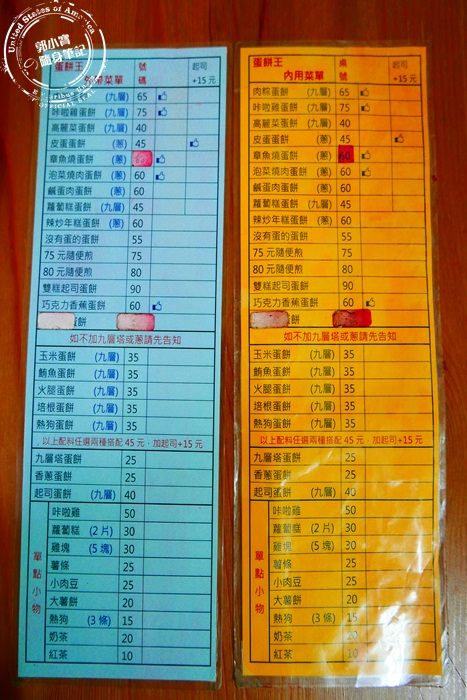 United States of America
郭小寶
の隨身筆記
OFFICIAL SEAL
蛋餅王 號碼 起司+15元
外用菜單
(九層) 65
咔啦雞蛋餅 (九層) 75
高麗菜蛋餅 (九層) 40
皮蛋蛋餅 (蔥) 45
章魚燒蛋餅 (蔥)
泡菜燒肉蛋餅 (蔥) 60
鹹蛋肉蛋餅 (蔥) 60
蘿蔔糕蛋餅 (九層) 45
辣炒年糕蛋餅 (蔥) 60
沒有蛋的蛋餅 55
75元隨便煎 75
80元隨便煎 80
雙糕起司蛋餅 90
巧克力香蕉蛋餅 60
蛋餅
如不加九層塔或蔥請先告知
玉米蛋餅 (九層) 35
鮪魚蛋餅 (九層) 35
火腿蛋餅 (九層) 35
培根蛋餅 (九層) 35
熱狗蛋餅 (九層) 35
以上配料任選兩種搭配 45 元、加起司+15 元
九層塔蛋餅 25
香蔥蛋餅 25
起司蛋餅 (九層) 40
單點小物
咔啦雞 50
蘿蔔糕 (2 片) 30
雞塊 (5 塊) 30
薯條 25
小肉豆 25
大薯餅 20
熱狗 (3 條) 15
奶茶 20
紅茶 10
蛋餅王 桌號 起司+15元
內用菜單
肉粽蛋餅 (九層) 65
咔啦雞蛋餅 (九層) 75
高麗菜蛋餅 (九層) 40
皮蛋蛋餅 (蔥) 45
章魚燒蛋餅 (蔥) 60
泡菜燒肉蛋餅 (蔥) 60
鹹蛋肉蛋餅 (蔥) 60
蘿蔔糕蛋餅 (九層) 45
辣炒年糕蛋餅 (蔥) 60
沒有蛋的蛋餅 55
75元隨便煎 75
80元隨便煎 80
雙糕起司蛋餅 90
巧克力香蕉蛋餅 60
蛋餅
如不加九層塔或蔥請先告知
玉米蛋餅 (九層) 35
鮪魚蛋餅 (九層) 35
火腿蛋餅 (九層) 35
培根蛋餅 (九層) 35
熱狗蛋餅 (九層) 35
以上配料任選兩種搭配 45 元、加起司+15 元
九層塔蛋餅 25
香蔥蛋餅 25
起司蛋餅 (九層) 40
單點小物
咔啦雞 50
蘿蔔糕 (2 片) 30
雞塊 (5 塊) 30
薯條 25
小肉豆 25
大薯餅 20
熱狗 (3 條) 15
奶茶 20
紅茶 10